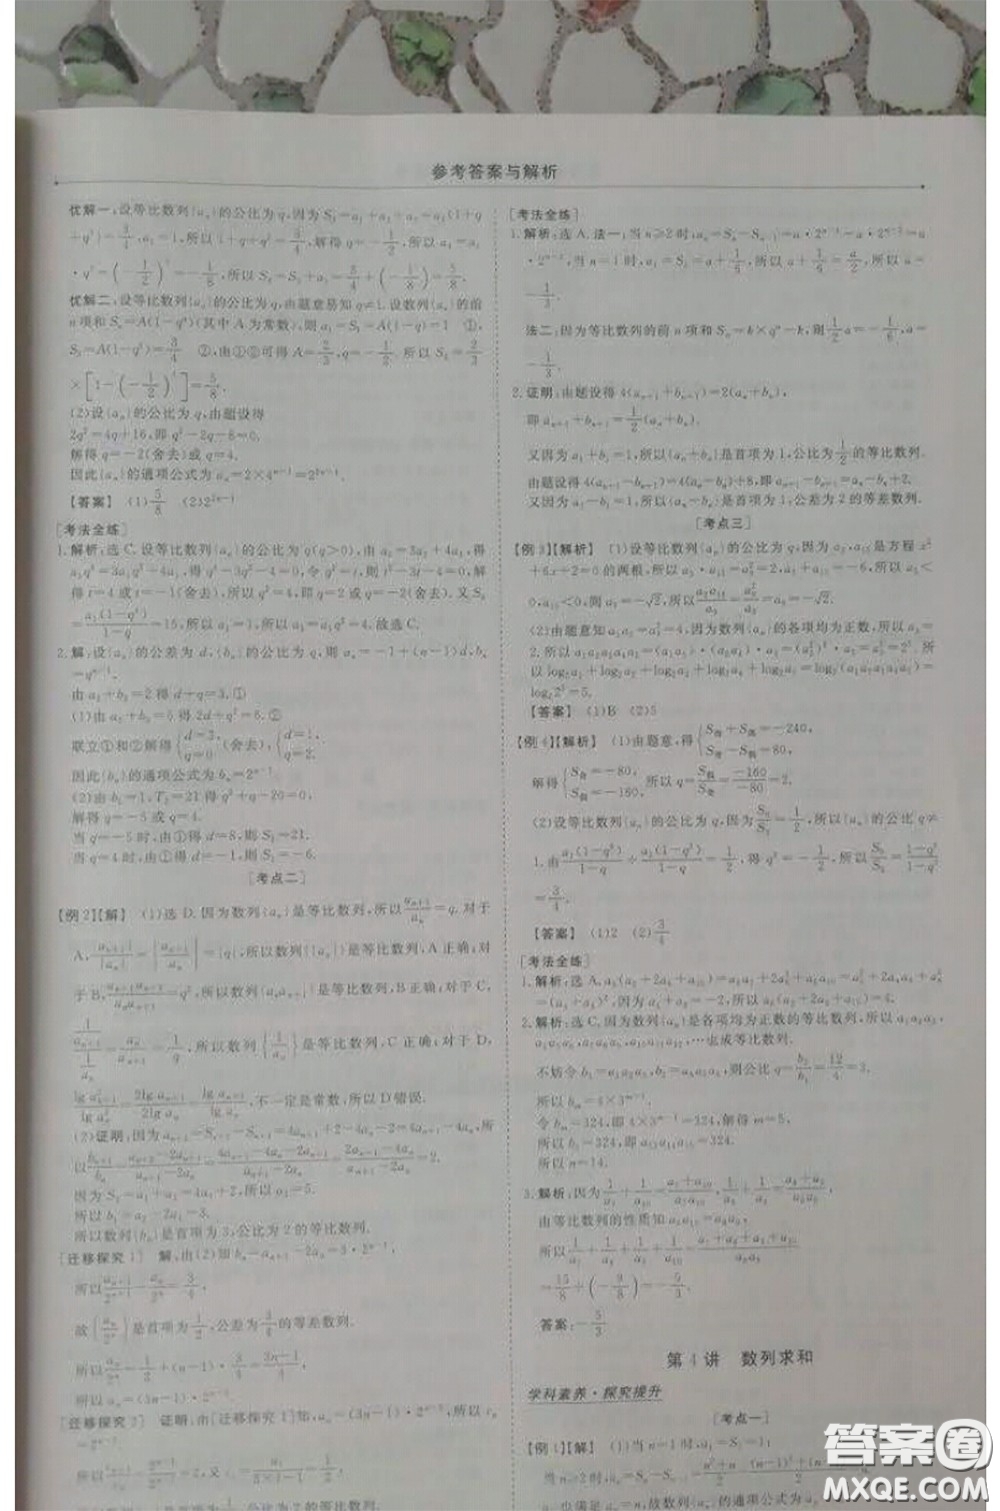 参考答案与解析
优解一,设等比数列{aₙ}的公比为q,因为S₃=a₁+a₂+a₃=a₁(1+q
+q²)=3/4,a₁=1,所以1+q+q²=3/4,解得q=-1/2,所以a₄=a₁
·q³=(-1/2)³=-1/8,所以S₄=S₃+a₄=3/4+(-1/8)=5/8.
优解二,设等比数列{aₙ}的公比为q,由题意易知q≠1.设数列{aₙ}的前
n项和Sₙ=A(1-qⁿ)(其中A为常数),则a₁=S₁=A(1-q)=1 ①,
S₃=A(1-q³)=3/4 ②,由①②可得A=2/3,q=-1/2.所以S₄=2/3
×[1-(-1/2)⁴]=5/8.
(2)设{aₙ}的公比为q,由题设得
2q²=4q+16,即q²-2q-8=0.
解得q=-2(舍去)或q=4.
因此{aₙ}的通项公式为aₙ=2×4ⁿ⁻¹=2²ⁿ⁻¹.
【答案】 (1)5/8 (2)2²ⁿ⁻¹
[考法全练]
1.解析:选C.设等比数列{aₙ}的公比为q(q>0),由a₅=3a₃+4a₁,得
a₁q⁴=3a₁q²+4a₁,得q⁴-3q²-4=0,令q²=t,则t²-3t-4=0,解
得t=4或t=-1(舍去),所以q²=4,即q=2或q=-2(舍去).又S₄
=a₁(1-q⁴)/(1-q)=15,所以a₁=1,所以a₃=a₁q²=4.故选C.
2.解:设{aₙ}的公差为d,{bₙ}的公比为q,则aₙ=-1+(n-1)d,bₙ
=qⁿ⁻¹.
由a₂+b₂=2得d+q=3.①
(1)由a₃+b₃=5得2d+q²=6.②
联立①和②解得{d=3,q=0(舍去),{d=1,q=2.
因此{bₙ}的通项公式为bₙ=2ⁿ⁻¹.
(2)由b₁=1,T₃=21得q²+q-20=0.
解得q=-5或q=4.
当q=-5时,由①得d=8,则S₃=21.
当q=4时,由①得d=-1,则S₃=-6.
[考点二]
【例2】【解】 (1)选D.因为数列{aₙ}是等比数列,所以aₙ₊₁/aₙ=q.对于
A,|aₙ₊₁|/|aₙ|=|aₙ₊₁/aₙ|=|q|,所以数列{|aₙ|}是等比数列,A正确;对
于B,aₙ₊₁aₙ₊₂/aₙaₙ₊₁=q²,所以数列{aₙaₙ₊₁}是等比数列,B正确;对于C,
(1/aₙ₊₁)/(1/aₙ)=aₙ/aₙ₊₁=1/q,所以数列{1/aₙ}是等比数列,C正确;对于D,
lg a²ₙ₊₁/lg a²ₙ=2lg aₙ₊₁/2lg aₙ=lg aₙ₊₁/lg aₙ,不一定是常数,所以D错误.
(2)证明:因为aₙ₊₂=Sₙ₊₂-Sₙ₊₁=4aₙ₊₁+2-4aₙ-2=4aₙ₊₁-4aₙ,所
以bₙ₊₁/bₙ=(aₙ₊₂-2aₙ₊₁)/(aₙ₊₁-2aₙ)=(4aₙ₊₁-4aₙ-2aₙ₊₁)/(aₙ₊₁-2aₙ)=(2aₙ₊₁-4aₙ)/(aₙ₊₁-2aₙ)=2.
因为S₂=a₁+a₂=4a₁+2,所以a₂=5.
所以b₁=a₂-2a₁=3.
所以数列{bₙ}是首项为3,公比为2的等比数列.
[迁移探究1] 解,由(2)知bₙ=aₙ₊₁-2aₙ=3·2ⁿ⁻¹,
所以aₙ₊₁/2ⁿ⁺¹-aₙ/2ⁿ=3/4,
故{aₙ/2ⁿ}是首项为1/2,公差为3/4的等差数列.
所以aₙ/2ⁿ=1/2+(n-1)·3/4=(3n-1)/4,
所以aₙ=(3n-1)·2ⁿ⁻².
[迁移探究2] 证明:由[迁移探究1]知,aₙ=(3n-1)·2ⁿ⁻²,所以cₙ
=2ⁿ⁻².
[考法全练]
1.解析:选A.法一:当n≥2时,aₙ=Sₙ-Sₙ₋₁=a·2ⁿ⁻¹-a·2ⁿ⁻²=a
·2ⁿ⁻²,当n=1时,a₁=S₁=a+1/6,所以a+1/6=a/2,所以a=
-1/3.
法二:因为等比数列的前n项和Sₙ=k×qⁿ-k,则1/2a=-1/6,a=
-1/3.
2.证明:由题设得4(aₙ₊₁+bₙ₊₁)=2(aₙ+bₙ),
即aₙ₊₁+bₙ₊₁=1/2(aₙ+bₙ).
又因为a₁+b₁=1,所以{aₙ+bₙ}是首项为1,公比为1/2的等比数列.
由题设得4(aₙ₊₁-bₙ₊₁)=4(aₙ-bₙ)+8,即aₙ₊₁-bₙ₊₁=aₙ-bₙ+2.
又因为a₁-b₁=1,所以{aₙ-bₙ}是首项为1,公差为2的等差数列.
[考点三]
【例3】【解析】 (1)设等比数列{aₙ}的公比为q,因为a₃,a₁₅是方程x²
+6x+2=0的两根,所以a₃·a₁₅=a₉²=2,a₃+a₁₅=-6,所以a₃<
0,a₁₅<0,则a₉=-√2,所以a₂a₁₆/a₉=a₉²/a₉=a₉=-√2.
(2)由题意知a₁a₅=a₃²=4,因为数列{aₙ}的各项均为正数,所以a₃=
2.所以a₁a₂a₃a₄a₅=(a₁a₅)·(a₂a₄)·a₃=(a₃²)²·a₃=a₃⁵=2⁵.所
以log₂a₁+log₂a₂+log₂a₃+log₂a₄+log₂a₅=log₂(a₁a₂a₃a₄a₅)=
log₂2⁵=5.
【答案】 (1)B (2)5
【例4】【解析】 (1)由题意,得{S奇+S偶=-240,S奇-S偶=80,
解得{S奇=-80,S偶=-160,所以q=S偶/S奇=-160/-80=2.
(2)设等比数列{aₙ}的公比为q,因为S₆/S₃=1/2,所以{aₙ}的公比q≠
1.由a₁(1-q⁶)/(1-q)÷a₁(1-q³)/(1-q)=1/2,得q³=-1/2,所以S₉/S₃=(1-q⁹)/(1-q³)
=3/4.
【答案】 (1)2 (2)3/4
[考法全练]
1.解析,选A.a₆(a₂+2a₆+a₁₀)=a₆a₂+2a₆²+a₆a₁₀=a₄²+2a₄a₈+a₈²
=(a₄+a₈)²,因为a₄+a₈=-2,所以a₆(a₂+2a₆+a₁₀)=4.
2.解析:选C.因为数列{aₙ}是各项均为正数的等比数列,所以a₁a₂a₃,
a₄a₅a₆,a₇a₈a₉,a₁₀a₁₁a₁₂,…也成等比数列.
不妨令b₁=a₁a₂a₃,b₂=a₄a₅a₆,则公比q=b₂/b₁=12/4=3.
所以bₘ=4×3ᵐ⁻¹.
令bₘ=324,即4×3ᵐ⁻¹=324,解得m=5,
所以b₅=324,即a₁₃a₁₄a₁₅=324.
所以n=14.
3.解析,因为1/a₇+1/a₁₀=(a₇+a₁₀)/a₇a₁₀,1/a₈+1/a₉=(a₈+a₉)/a₈a₉,
由等比数列的性质知a₇a₁₀=a₈a₉,
所以1/a₇+1/a₈+1/a₉+1/a₁₀=(a₇+a₈+a₉+a₁₀)/a₈a₉
=15/8÷(-9/8)=-5/3.
答案:-5/3
第4讲 数列求和
学科素养·探究提升
[考点一]
【例1】【解】 (1)当n=1时,a₁=S₁=1,
当n≥2时,aₙ=Sₙ-Sₙ₋₁
答案圈
MXQE.COM